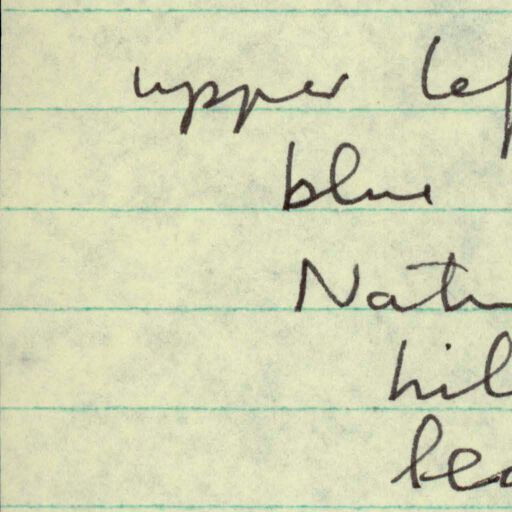 upper lef
blue
Natu
hil